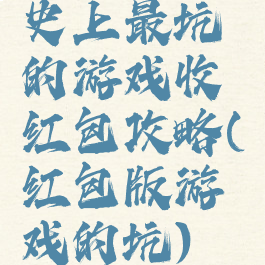 史上最坑
的游戏收
红包攻略(
红包版游
戏的坑)